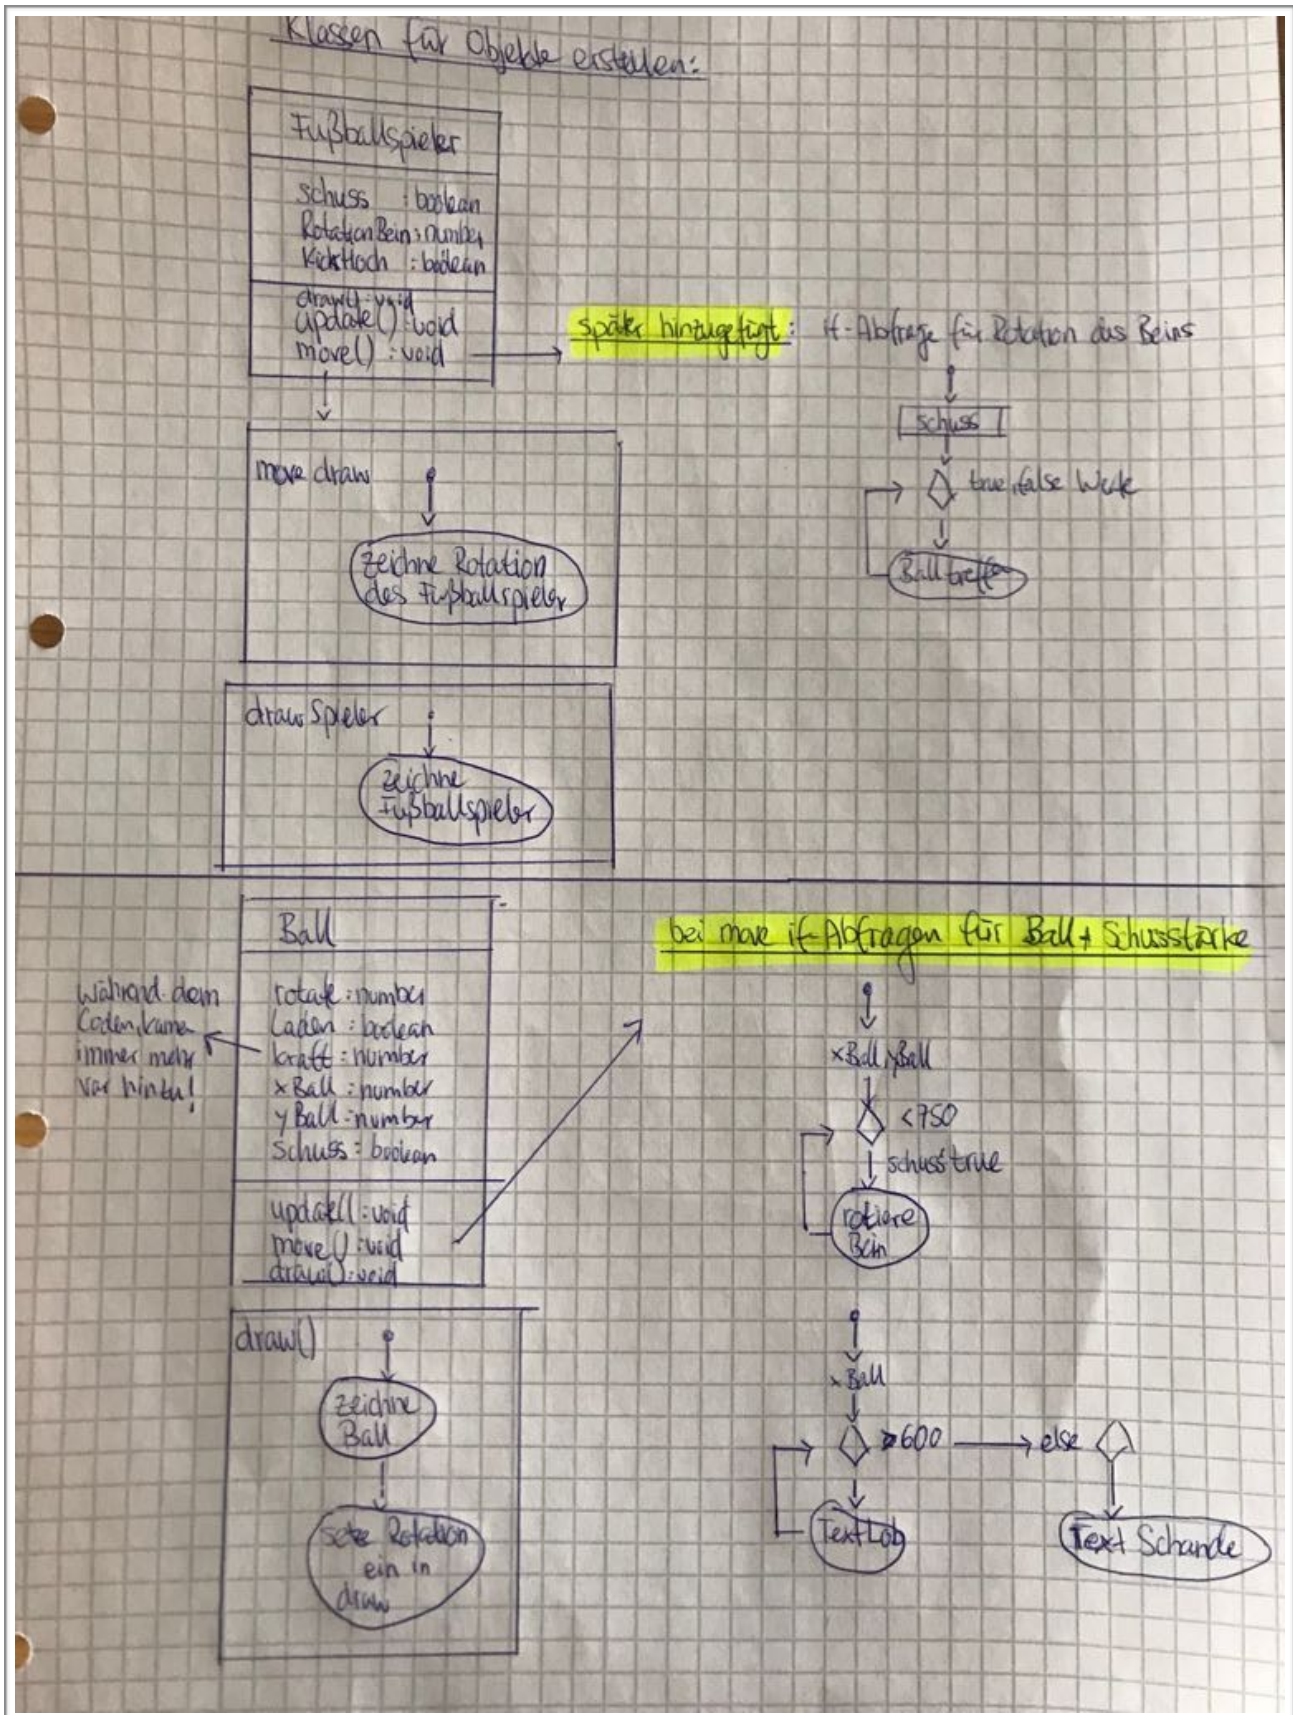 Klassen für Objekte erstellen:
Fußballspieler
schuss : boolean
RotationBein : number
KickHoch : boolean
draw() : void
update() : void
move() : void
später hinzugefügt: if-Abfrage für Rotation des Beins
schuss
true, false Werte
Ball treffen
move draw
zeichne Rotation
des Fußballspieler
draw Spieler
zeichne
Fußballspieler
Ball
rotate : number
Laden : boolean
kraft : number
xBall : number
yBall : number
schuss : boolean
update() : void
move() : void
draw() : void
während dem
Coden, kamen
immer mehr
var hinzu!
bei move if-Abfragen für Ball + Schussstärke
xBall, yBall
<750
schuss true
rotiere
Bein
draw()
zeichne
Ball
setze Rotation
ein in
draw
xBall
>600
else
Text Lob
Text Schande